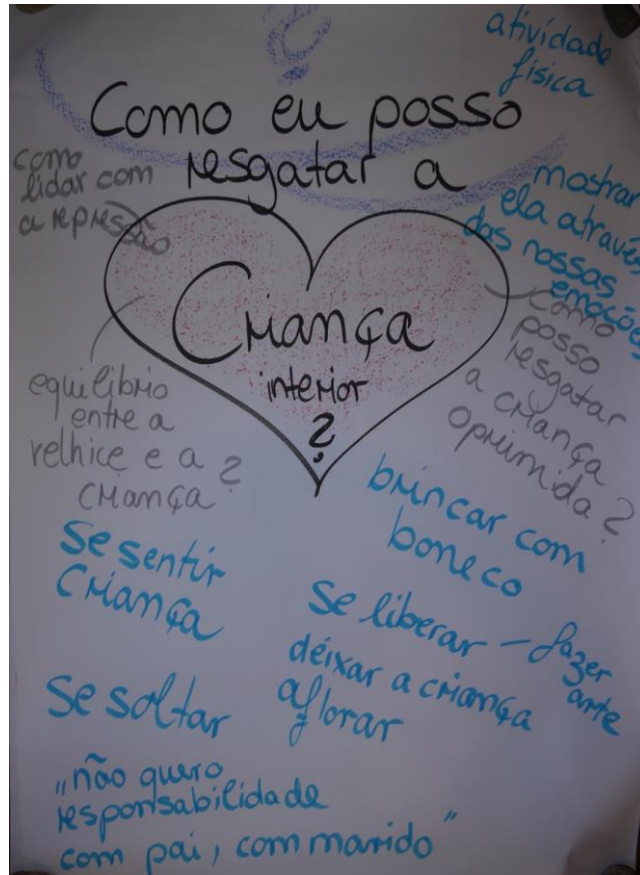 ?
atividade
física
Como eu posso
resgatar a
como
lidar com
a repressão
mostrar
ela através
das nossas
emoções
Criança
interior
?
como
posso
resgatar
a criança
oprimida?
equilibrio
entre a
velhice e a
criança?
brincar com
boneco
Se sentir
criança
Se liberar – fazer
arte
deixar a criança
aflorar
Se soltar
„não quero
responsabilidade
com pai, com marido"